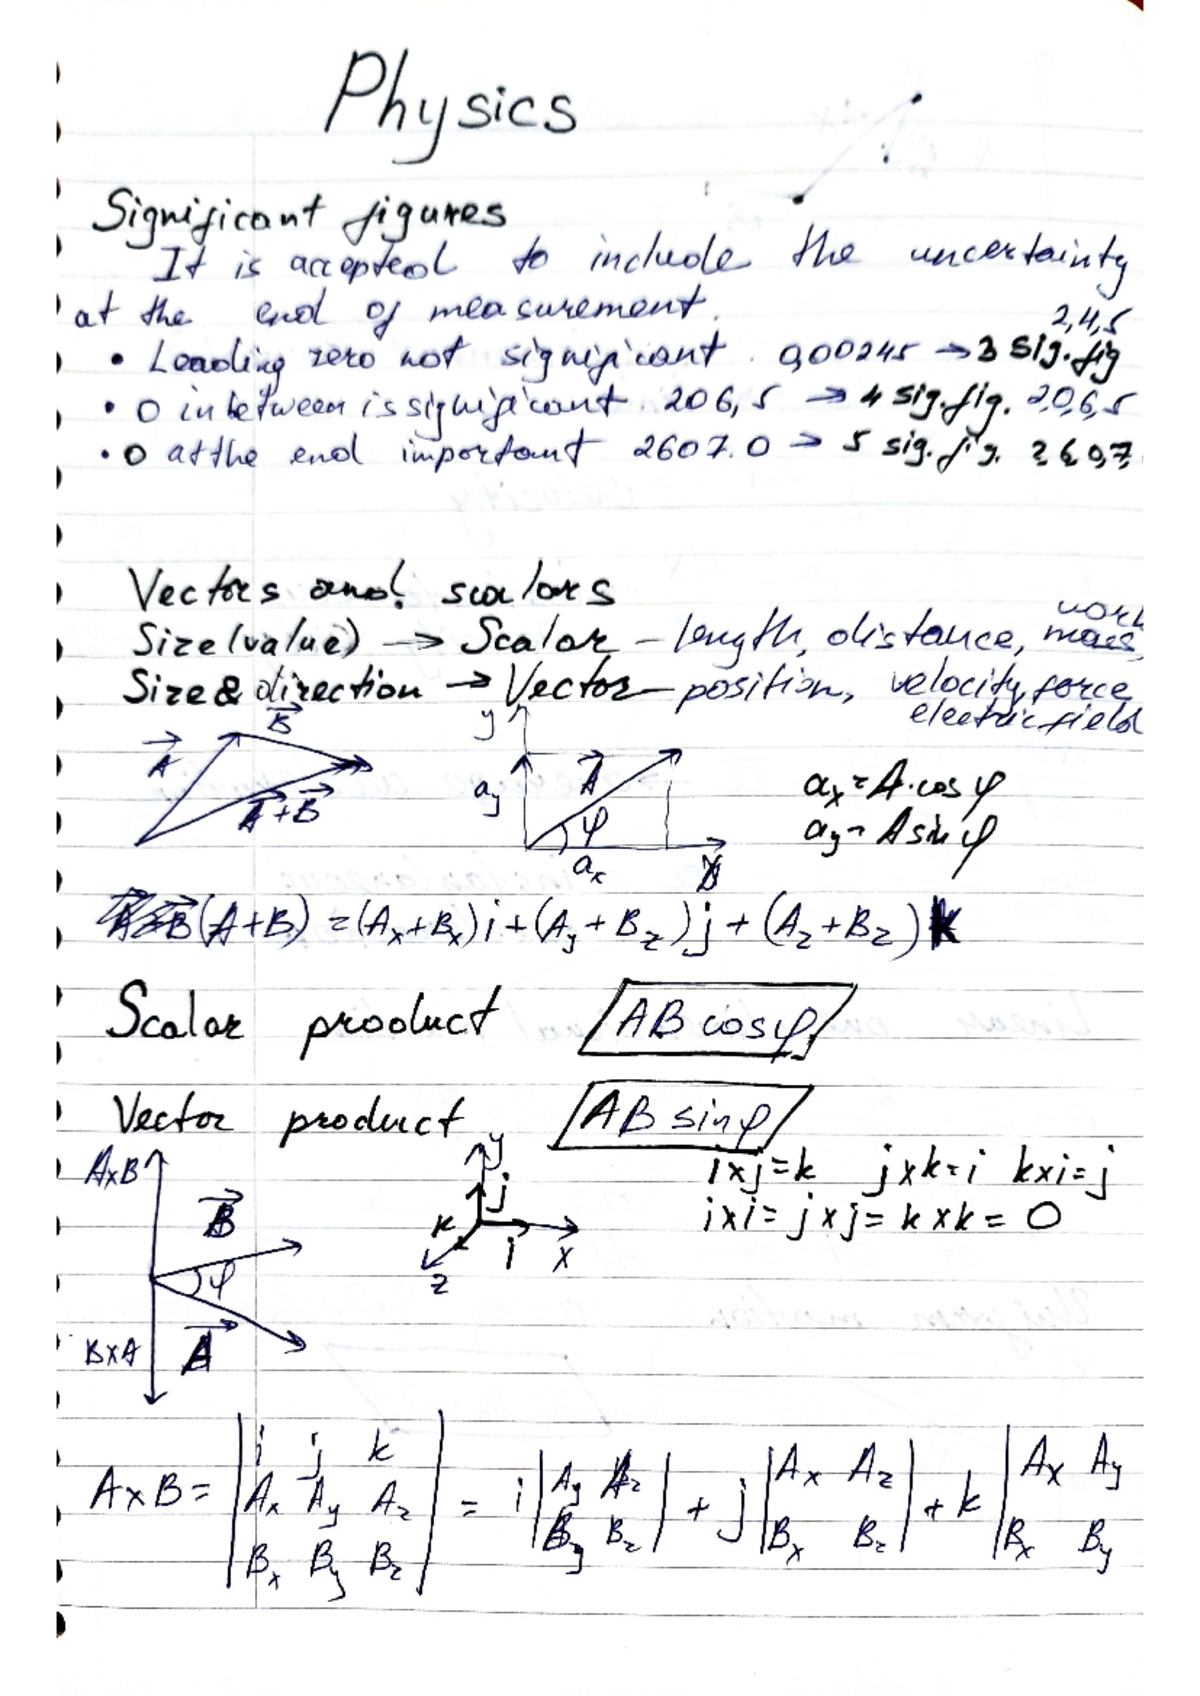 Physics
Significant figures
It is accepted to include the uncertainty
at the end of measurement.
2,4,5
• Leading zero not significant. 0,00245 → 3 sig.fig
• 0 in between is significant. 206,5 → 4 sig.fig. 2,0,6,5
• 0 at the end important 2607.0 → 5 sig.fig. 2,6,0,7,
Vectors and scalars
work
Size (value) → Scalar – length, distance, mass,
Size & direction → Vector – position, velocity, force
electric field
A B A+B
y a_y A φ a_x x
a_x = A·cos φ
a_y = A sin φ
(A+B) = (A_x+B_x)i+(A_y+B_z)j+(A_z+B_z)k
Scalar product AB cosφ
Vector product AB sinφ
i×j=k j×k=i k×i=j
i×i=j×j=k×k=0
A×B B φ A B×A
y j k i x z
A×B = |i j k| = i|A_y A_z| + j|A_x A_z| + k|A_x A_y
|A_x A_y A_z| |B_y B_z| |B_x B_z| |B_x B_y
|B_x B_y B_z|